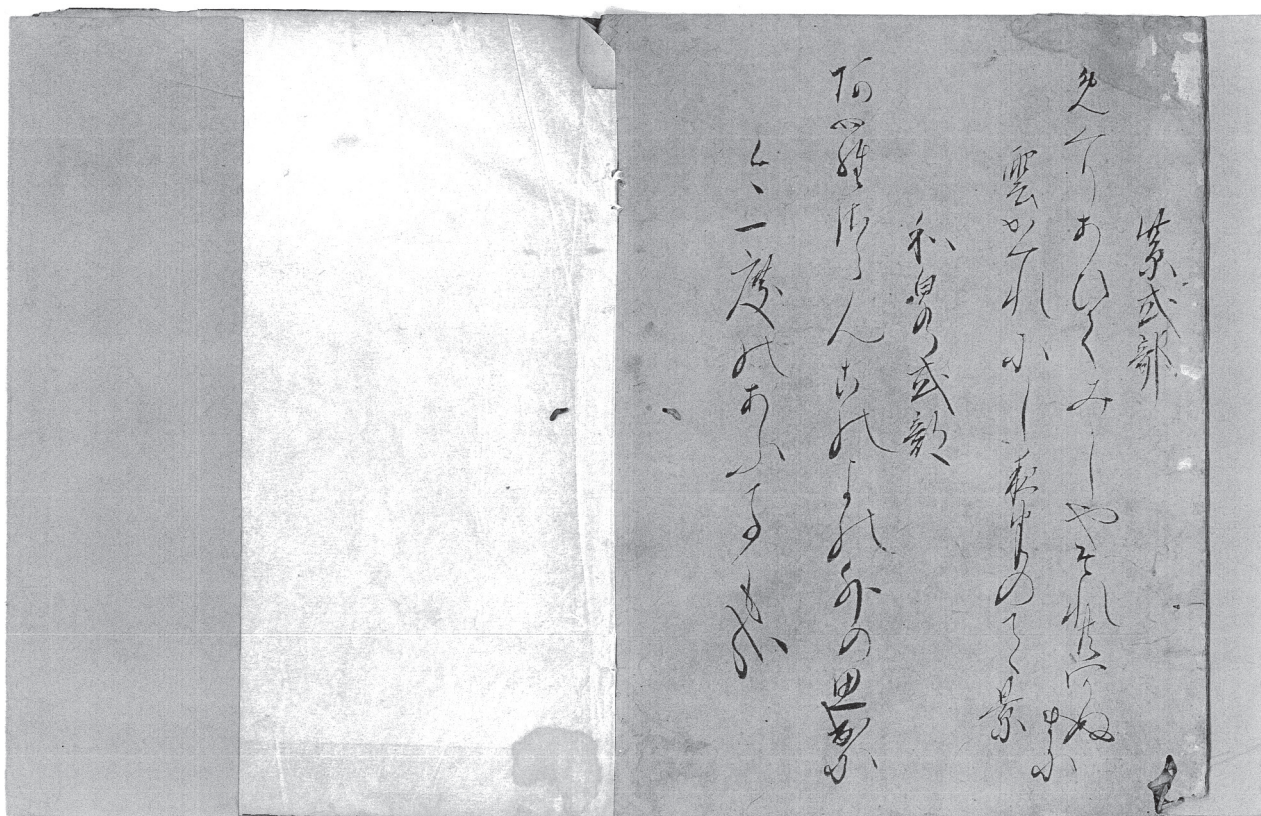 紫式部
めくりあひてみしやそれ共わかぬ
まに
雲かくれにし夜半の月景
和泉式部
阿らさらんこのよの外の思出に
今一度のあふ事も哉